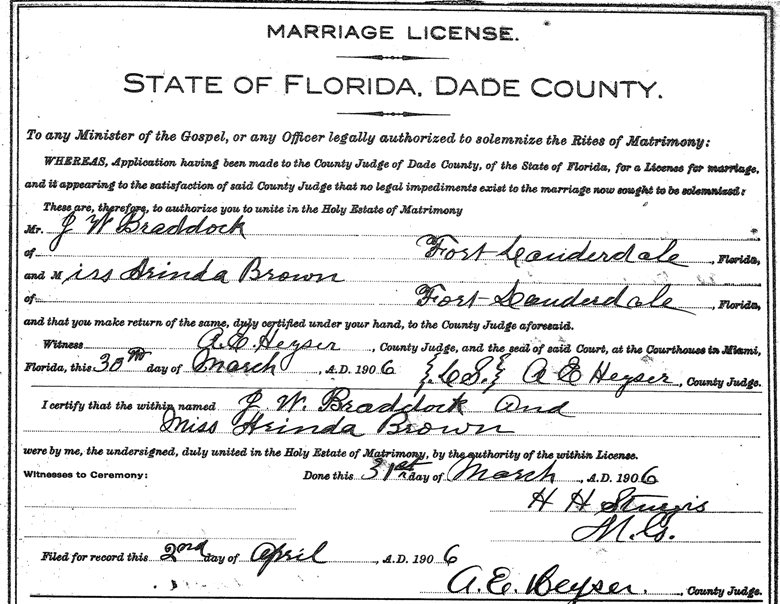 MARRIAGE LICENSE.
STATE OF FLORIDA, DADE COUNTY.
To any Minister of the Gospel, or any Officer legally authorized to solemnize the Rites of Matrimony:
WHEREAS, Application having been made to the County Judge of Dade County, of the State of Florida, for a License for marriage,
and it appearing to the satisfaction of said County Judge that no legal impediments exist to the marriage now sought to be solemnized:
These are, therefore, to authorize you to unite in the Holy Estate of Matrimony
Mr. J W Braddock
of Fort Lauderdale, Florida,
and Miss Brown
of Fort Lauderdale, Florida,
and that you make return of the same, duly certified under your hand, to the County Judge aforesaid.
Witness A.E. Heyser, County Judge, and the seal of said Court, at the Courthouse in Miami,
Florida, this 30th day of March, A.D. 1906 {L.S.} A E Heyser, County Judge.
I certify that the within named J. W. Braddock and
Miss Brown
were by me, the undersigned, duly united in the Holy Estate of Matrimony, by the authority of the within License.
Witnesses to Ceremony: Done this 31st day of March, A.D. 1906
H H Sturgis
M.G.
Filed for record this 2nd day of April, A.D. 1906
A.E. Heyser., County Judge.